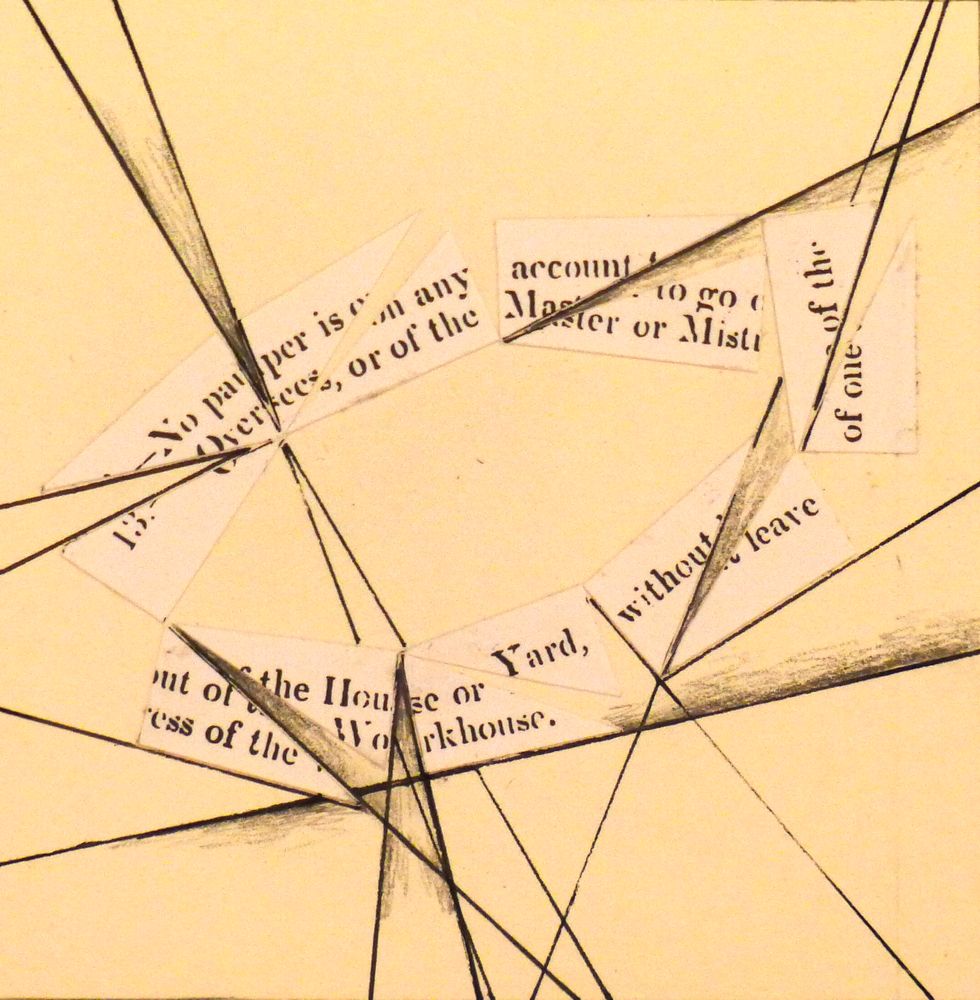 13.—No pauper is on any
Overseees, or of the
account to to go o
Master or Mistr
of the
of one
without leave
Yard,
out of the House or
ress of the Workhouse.